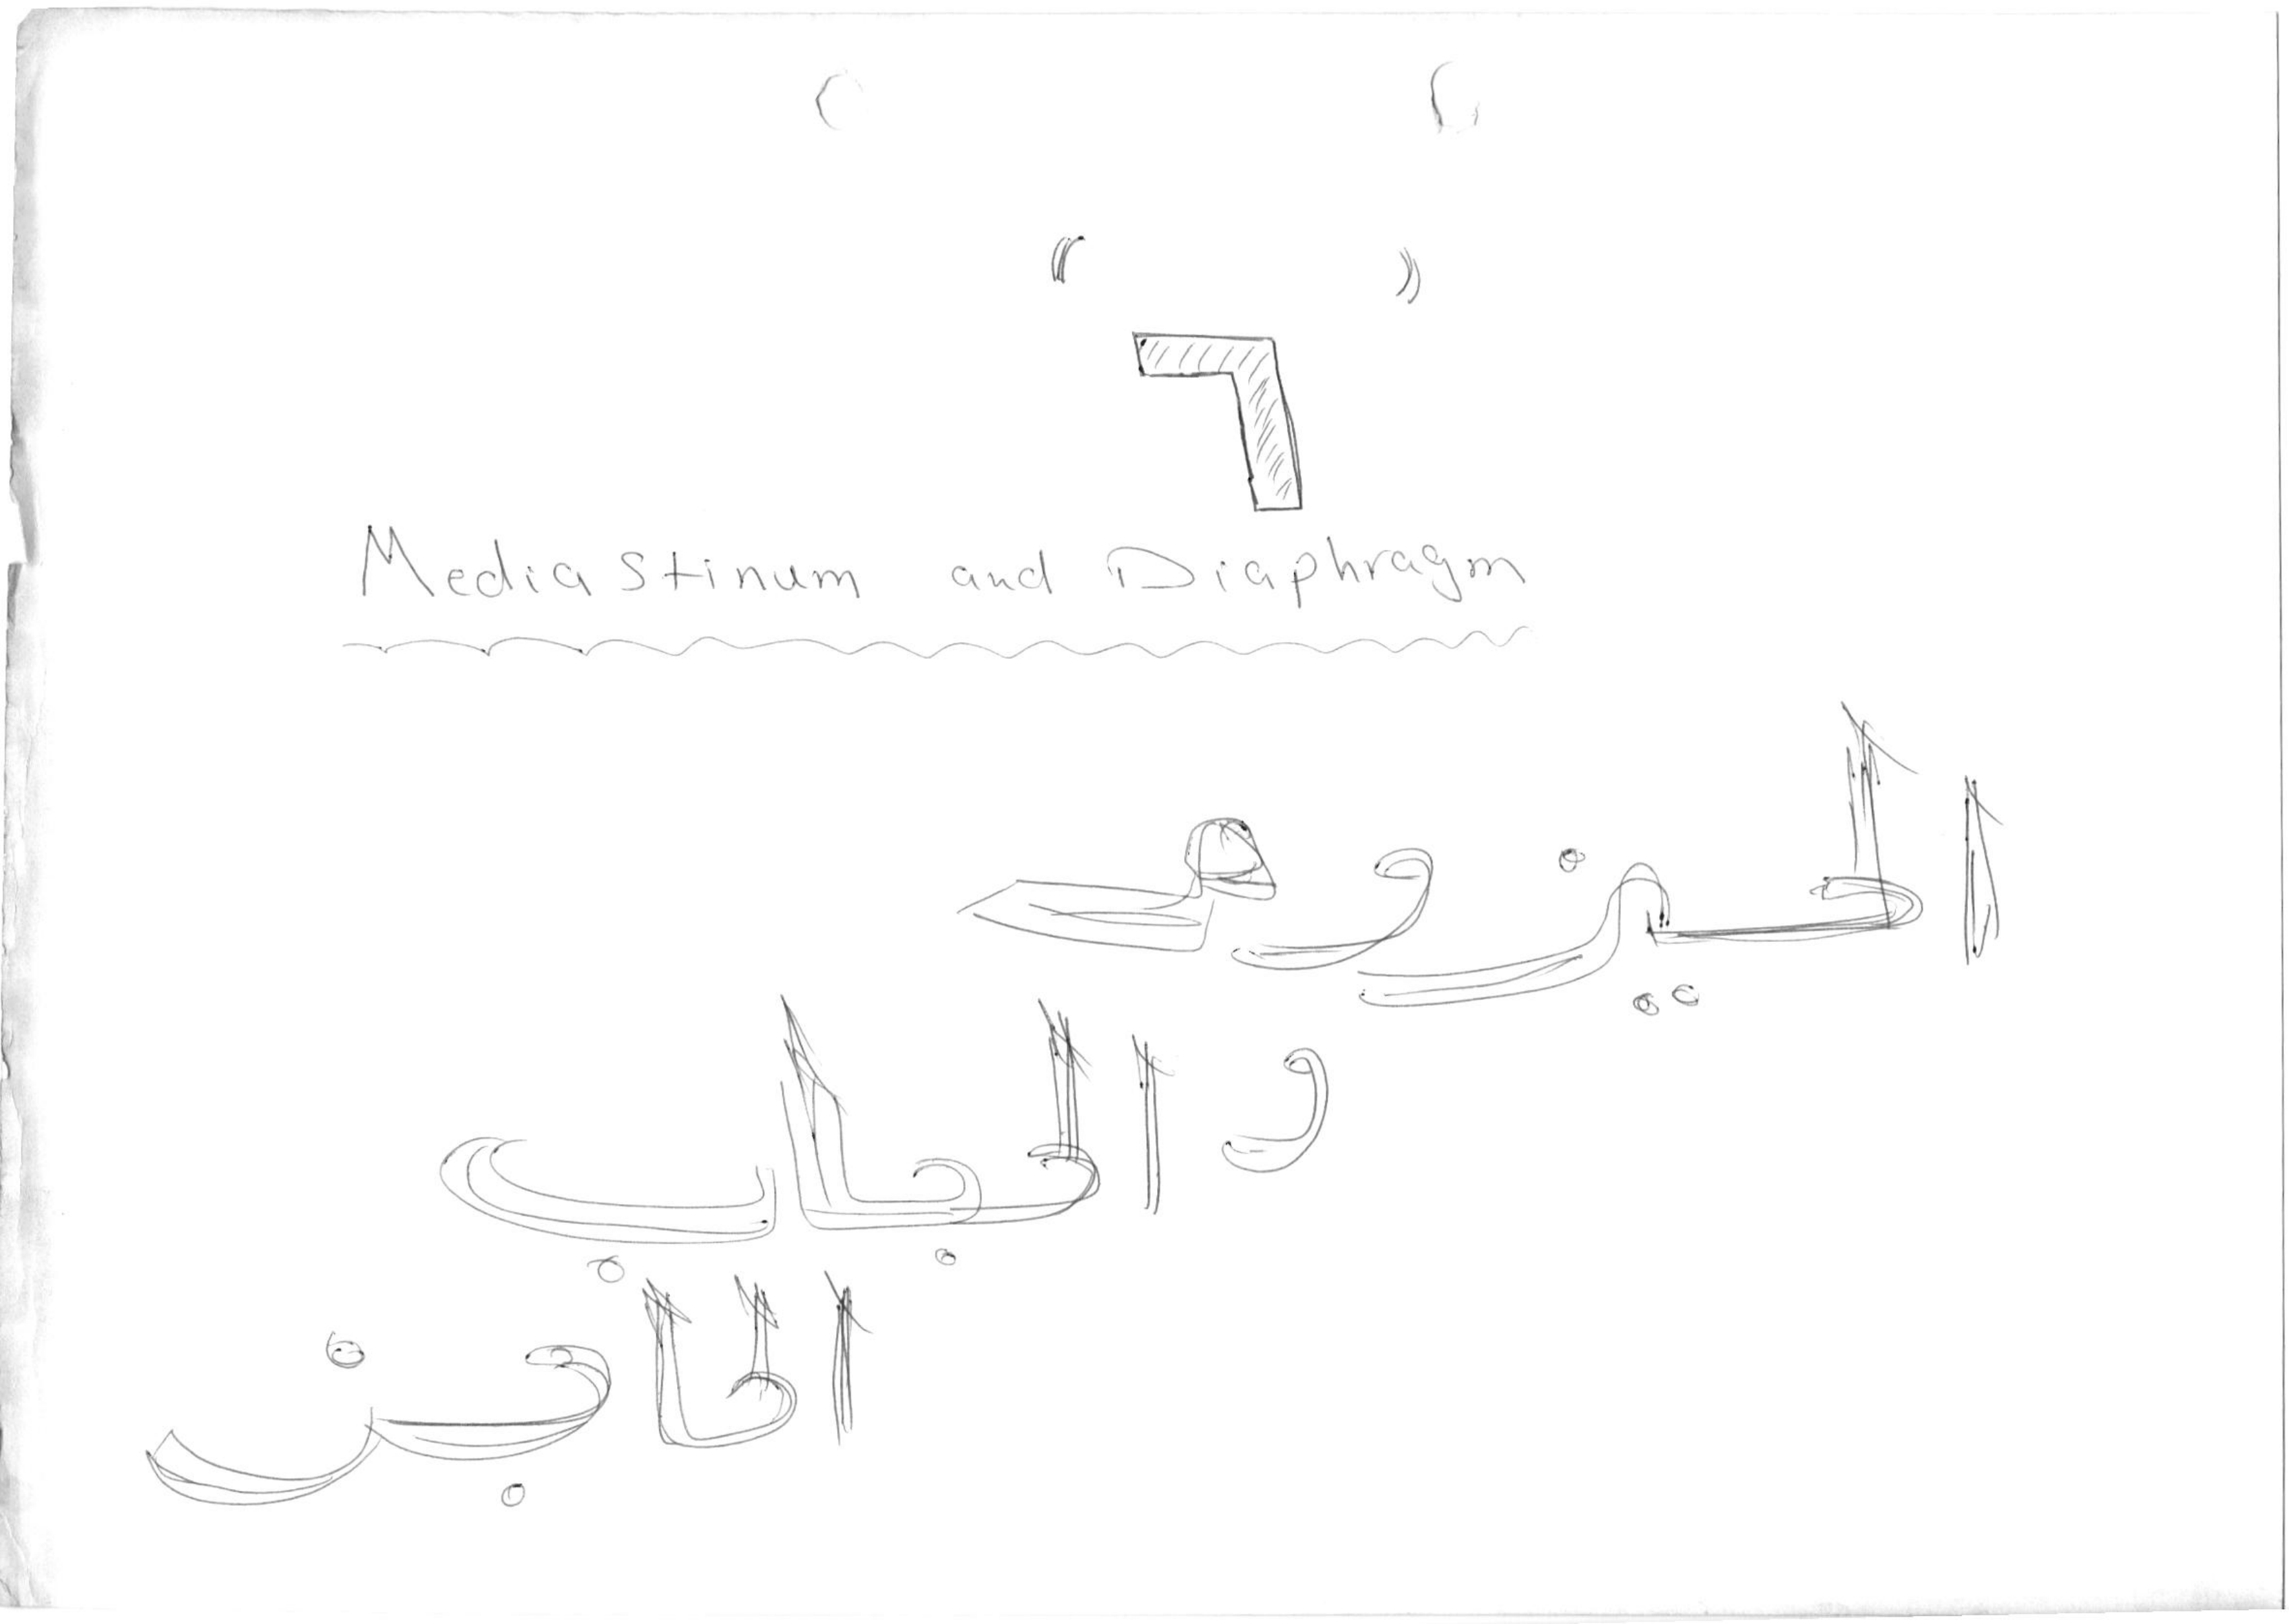 (( ))
٦
Mediastinum and Diaphragm
الحيزوم
و الحجاب
الحاجز